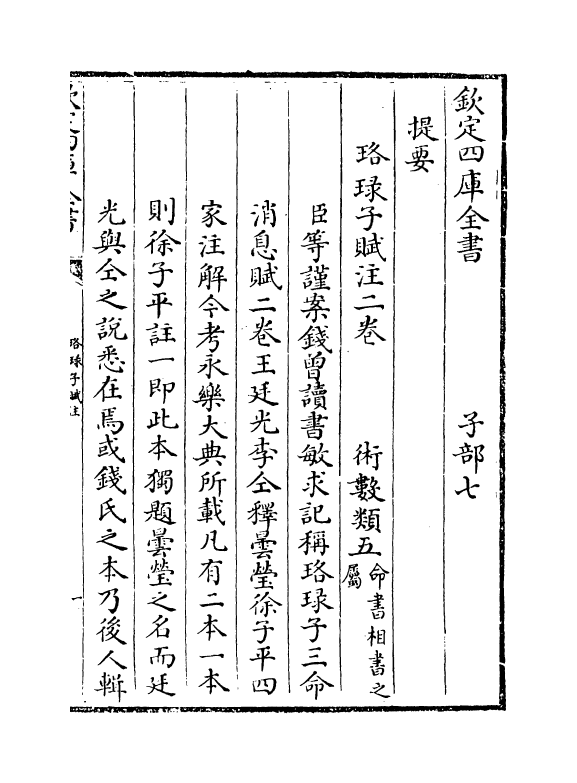 欽定四庫全書　子部七
提要
珞琭子賦注二卷　術數類五命書相書之屬
臣等謹案錢曾讀書敏求記稱珞琭子三命
消息賦二卷王廷光李仝釋曇瑩徐子平四
家注解今考永樂大典所載凡有二本一本
則徐子平註一即此本獨題曇瑩之名而廷
光與仝之說悉在焉或錢氏之本乃後人輯
欽定四庫全書
珞琭子賦注
一